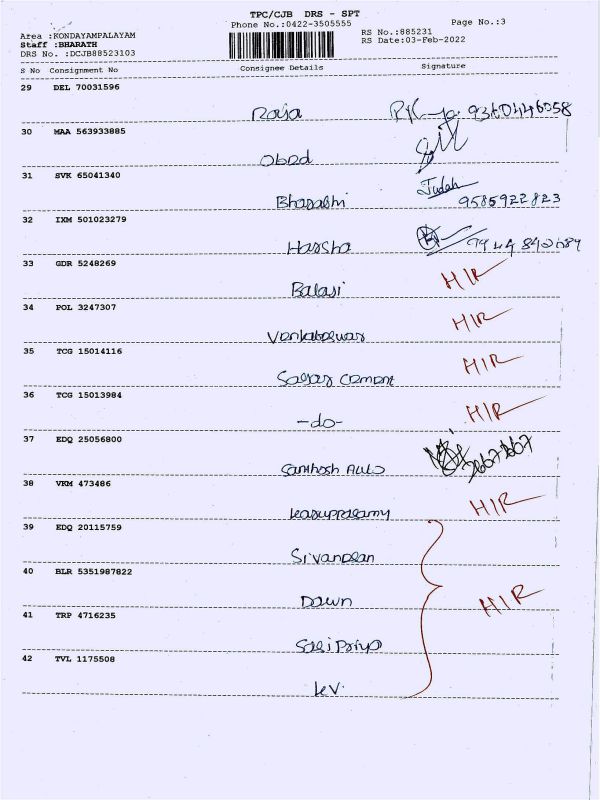 TPC/CJB DRS - SPT
Phone No.:0422-3505555
Page No.:3
Area :KONDAYAMPALAYAM
Staff :BHARATH
DRS No. :DCJB88523103
RS No.:885231
RS Date:03-Feb-2022
S No Consignment No Consignee Details Signature
29 DEL 70031596
Raja 9360446058
30 MAA 563933885
Obed
31 SVK 65041340
Bharathi Judah
9585922823
32 IXM 501023279
Harsha
33 GDR 5248269
Balaji HIR
34 POL 3247307
Venkateswar HIR
35 TCG 15014116
Sagar Cement HIR
36 TCG 15013984
-do- HIR
37 EDQ 25056800
Santhosh Auto
38 VKM 473486
HIR
39 EDQ 20115759
40 BLR 5351987822
Dawn HIR
41 TRP 4716235
Sasi Priya
42 TVL 1175508